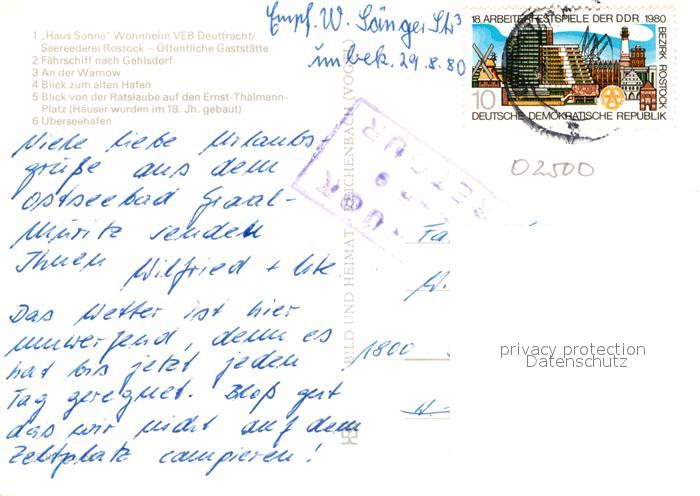 1 „Haus Sonne" Wohnheim VEB Deutfracht/
Seereederei Rostock – Öffentliche Gaststätte
2 Fährschiff nach Gehlsdorf
3 An der Warnow
4 Blick zum alten Hafen
5 Blick von der Ratslaube auf den Ernst-Thälmann-
Platz (Häuser wurden im 18. Jh. gebaut)
6 Überseehafen
Empf. W. Sänger
unbek. 29.8.80
18. ARBEITERFESTSPIELE DER DDR 1980
BEZIRK ROSTOCK
10
DEUTSCHE DEMOKRATISCHE REPUBLIK
ZURÜCK
RETOUR
02500
Viele liebe Urlaubs-
grüße aus dem
Ostseebad Graal-
Müritz senden
Ihnen Wilfried + Ute.
Das Wetter ist hier
umwerfend, denn es
hat bis jetzt jeden
Tag geregnet. Bloß gut
das wir nicht auf dem
Zeltplatz campieren!
BILD UND HEIMAT REICHENBACH (VOGTL)
Fa
W.
1800
privacy protection
Datenschutz